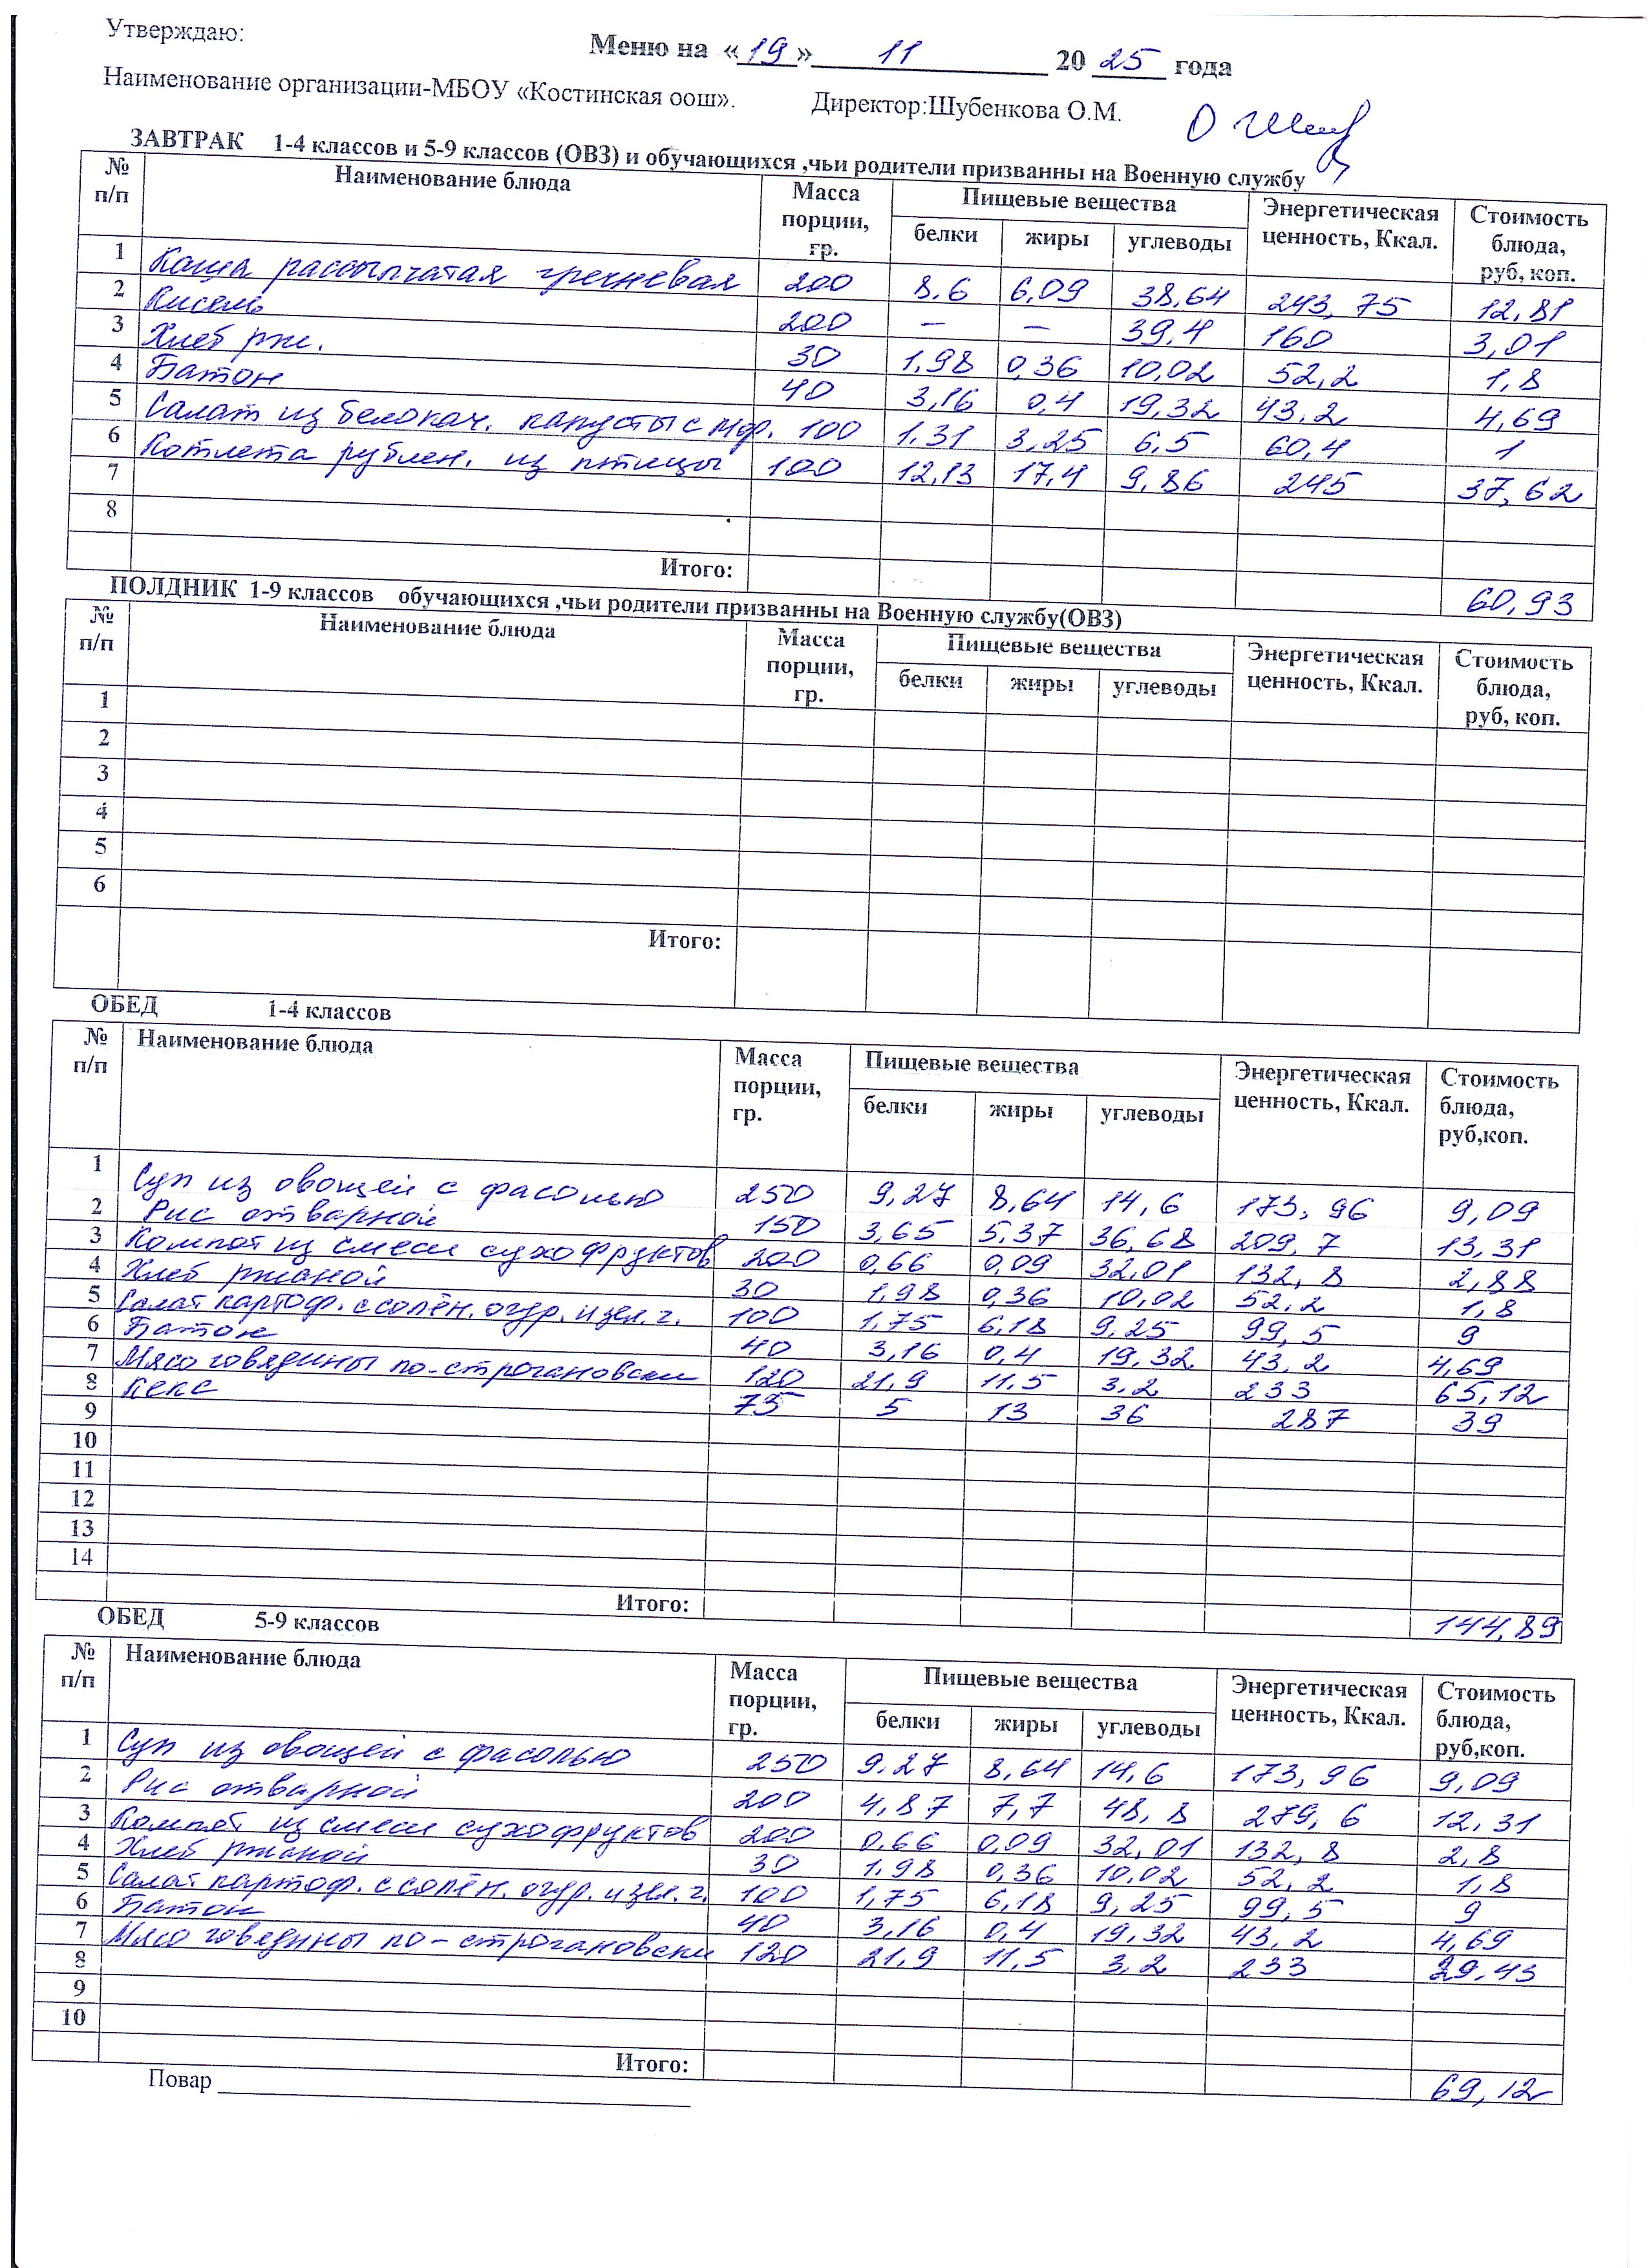 Утверждаю:
Меню на «19» 11 20 25 года
Наименование организации-МБОУ «Костинская оош». Директор:Шубенкова О.М.
ЗАВТРАК 1-4 классов и 5-9 классов (ОВЗ) и обучающихся ,чьи родители призванны на Военную службу
№ п/п Наименование блюда Масса порции, гр. Пищевые вещества белки жиры углеводы Энергетическая ценность, Ккал. Стоимость блюда, руб, коп.
1 Каша рассыпчатая гречневая 200 8,6 6,09 38,64 243,75 12,81
2 Кисель 200 – – 39,4 160 3,01
3 Хлеб рж. 30 1,98 0,36 10,02 52,2 1,8
4 Батон 40 3,16 0,4 19,32 43,2 4,69
5 Салат из белокач. капусты с мор. 100 1,31 3,25 6,5 60,4 1
6 Котлета рублен. из птицы 100 12,13 17,4 9,86 245 37,62
7
8
Итого: 60,93
ПОЛДНИК 1-9 классов обучающихся ,чьи родители призванны на Военную службу(ОВЗ)
№ п/п Наименование блюда Масса порции, гр. Пищевые вещества белки жиры углеводы Энергетическая ценность, Ккал. Стоимость блюда, руб, коп.
1
2
3
4
5
6
Итого:
ОБЕД 1-4 классов
№ п/п Наименование блюда Масса порции, гр. Пищевые вещества белки жиры углеводы Энергетическая ценность, Ккал. Стоимость блюда, руб,коп.
1 Суп из овощей с фасолью 250 9,27 8,64 14,6 173,96 9,09
2 Рис отварной 150 3,65 5,37 36,68 209,7 13,31
3 Компот из смеси сухофруктов 200 0,66 0,09 32,01 132,8 2,88
4 Хлеб ржаной 30 1,98 0,36 10,02 52,2 1,8
5 Салат картоф. с солён. огур. и зел. г. 100 1,75 6,18 9,25 99,5 9
6 Батон 40 3,16 0,4 19,32 43,2 4,69
7 Мясо говядины по-строгановски 120 21,9 11,5 3,2 233 65,12
8 Кекс 75 5 13 36 287 39
9
10
11
12
13
14
Итого: 144,89
ОБЕД 5-9 классов
№ п/п Наименование блюда Масса порции, гр. Пищевые вещества белки жиры углеводы Энергетическая ценность, Ккал. Стоимость блюда, руб,коп.
1 Суп из овощей с фасолью 250 9,27 8,64 14,6 173,96 9,09
2 Рис отварной 200 4,87 7,7 48,8 279,6 12,31
3 Компот из смеси сухофруктов 200 0,66 0,09 32,01 132,8 2,8
4 Хлеб ржаной 30 1,98 0,36 10,02 52,2 1,8
5 Салат картоф. с солён. огур. и зел. г. 100 1,75 6,18 9,25 99,5 9
6 Батон 40 3,16 0,4 19,32 43,2 4,69
7 Мясо говядины по-строгановски 120 21,9 11,5 3,2 233 29,43
8
9
10
Итого: 69,12
Повар